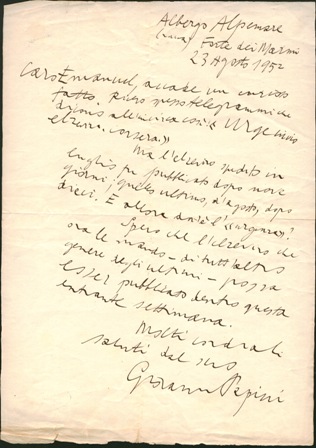 Albergo Alpemare
(Lucca) Forte dei Marmi
23 Agosto 1952
Caro Emanuel, accade un curioso
fatto. Ricevo spesso telegrammi che
dicono all'incirca così: «Urge invio
elzeviro corsera.»
Ma l'elzeviro spedito in
luglio fu pubblicato dopo nove
giorni; quello ultimo, d'agosto, dopo
dieci. E allora dov'è l'«urgenza»?
Spero che l'elzeviro che
ora le mando - di tutt'altro
genere degli ultimi - possa
esser pubblicato dentro questa
entrante settimana.
Molti cordiali
saluti dal suo
Giovanni Papini